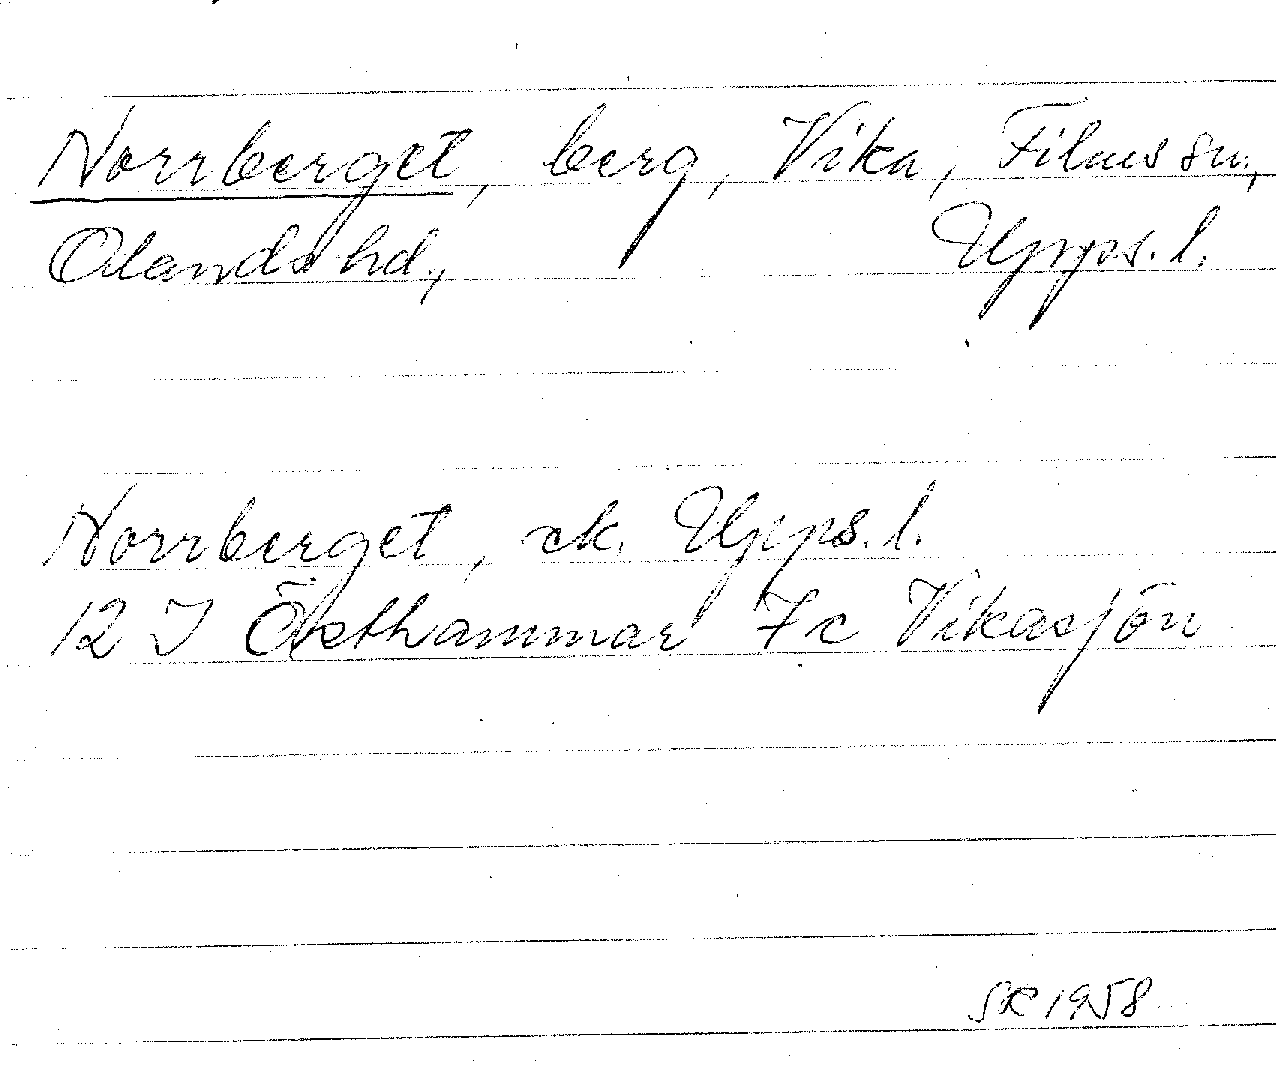 Norrberget, berg, Vika, Films sn,
Olands hd, Upps. l.
Norrberget, ek. Upps. l.
12 I Östhammar 7c Vikasjön
SK 1958